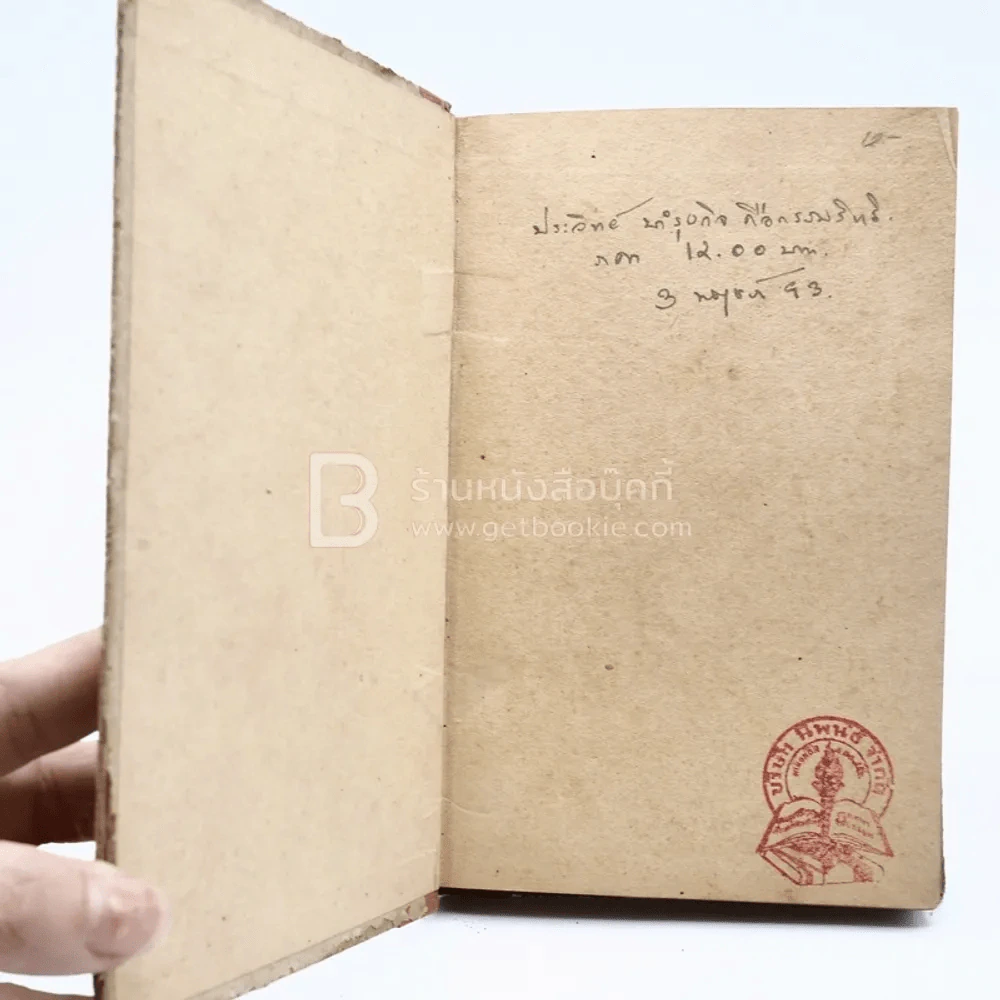 ประสิทธิ์ บำรุงกิจ ถือกรรมสิทธิ์.
ราคา 12.00 บาท.
3 พฤษภา 93.
ร้านหนังสือบุ๊คกี้
www.getbookie.com
บริษัท นิพนธ์ จำกัด